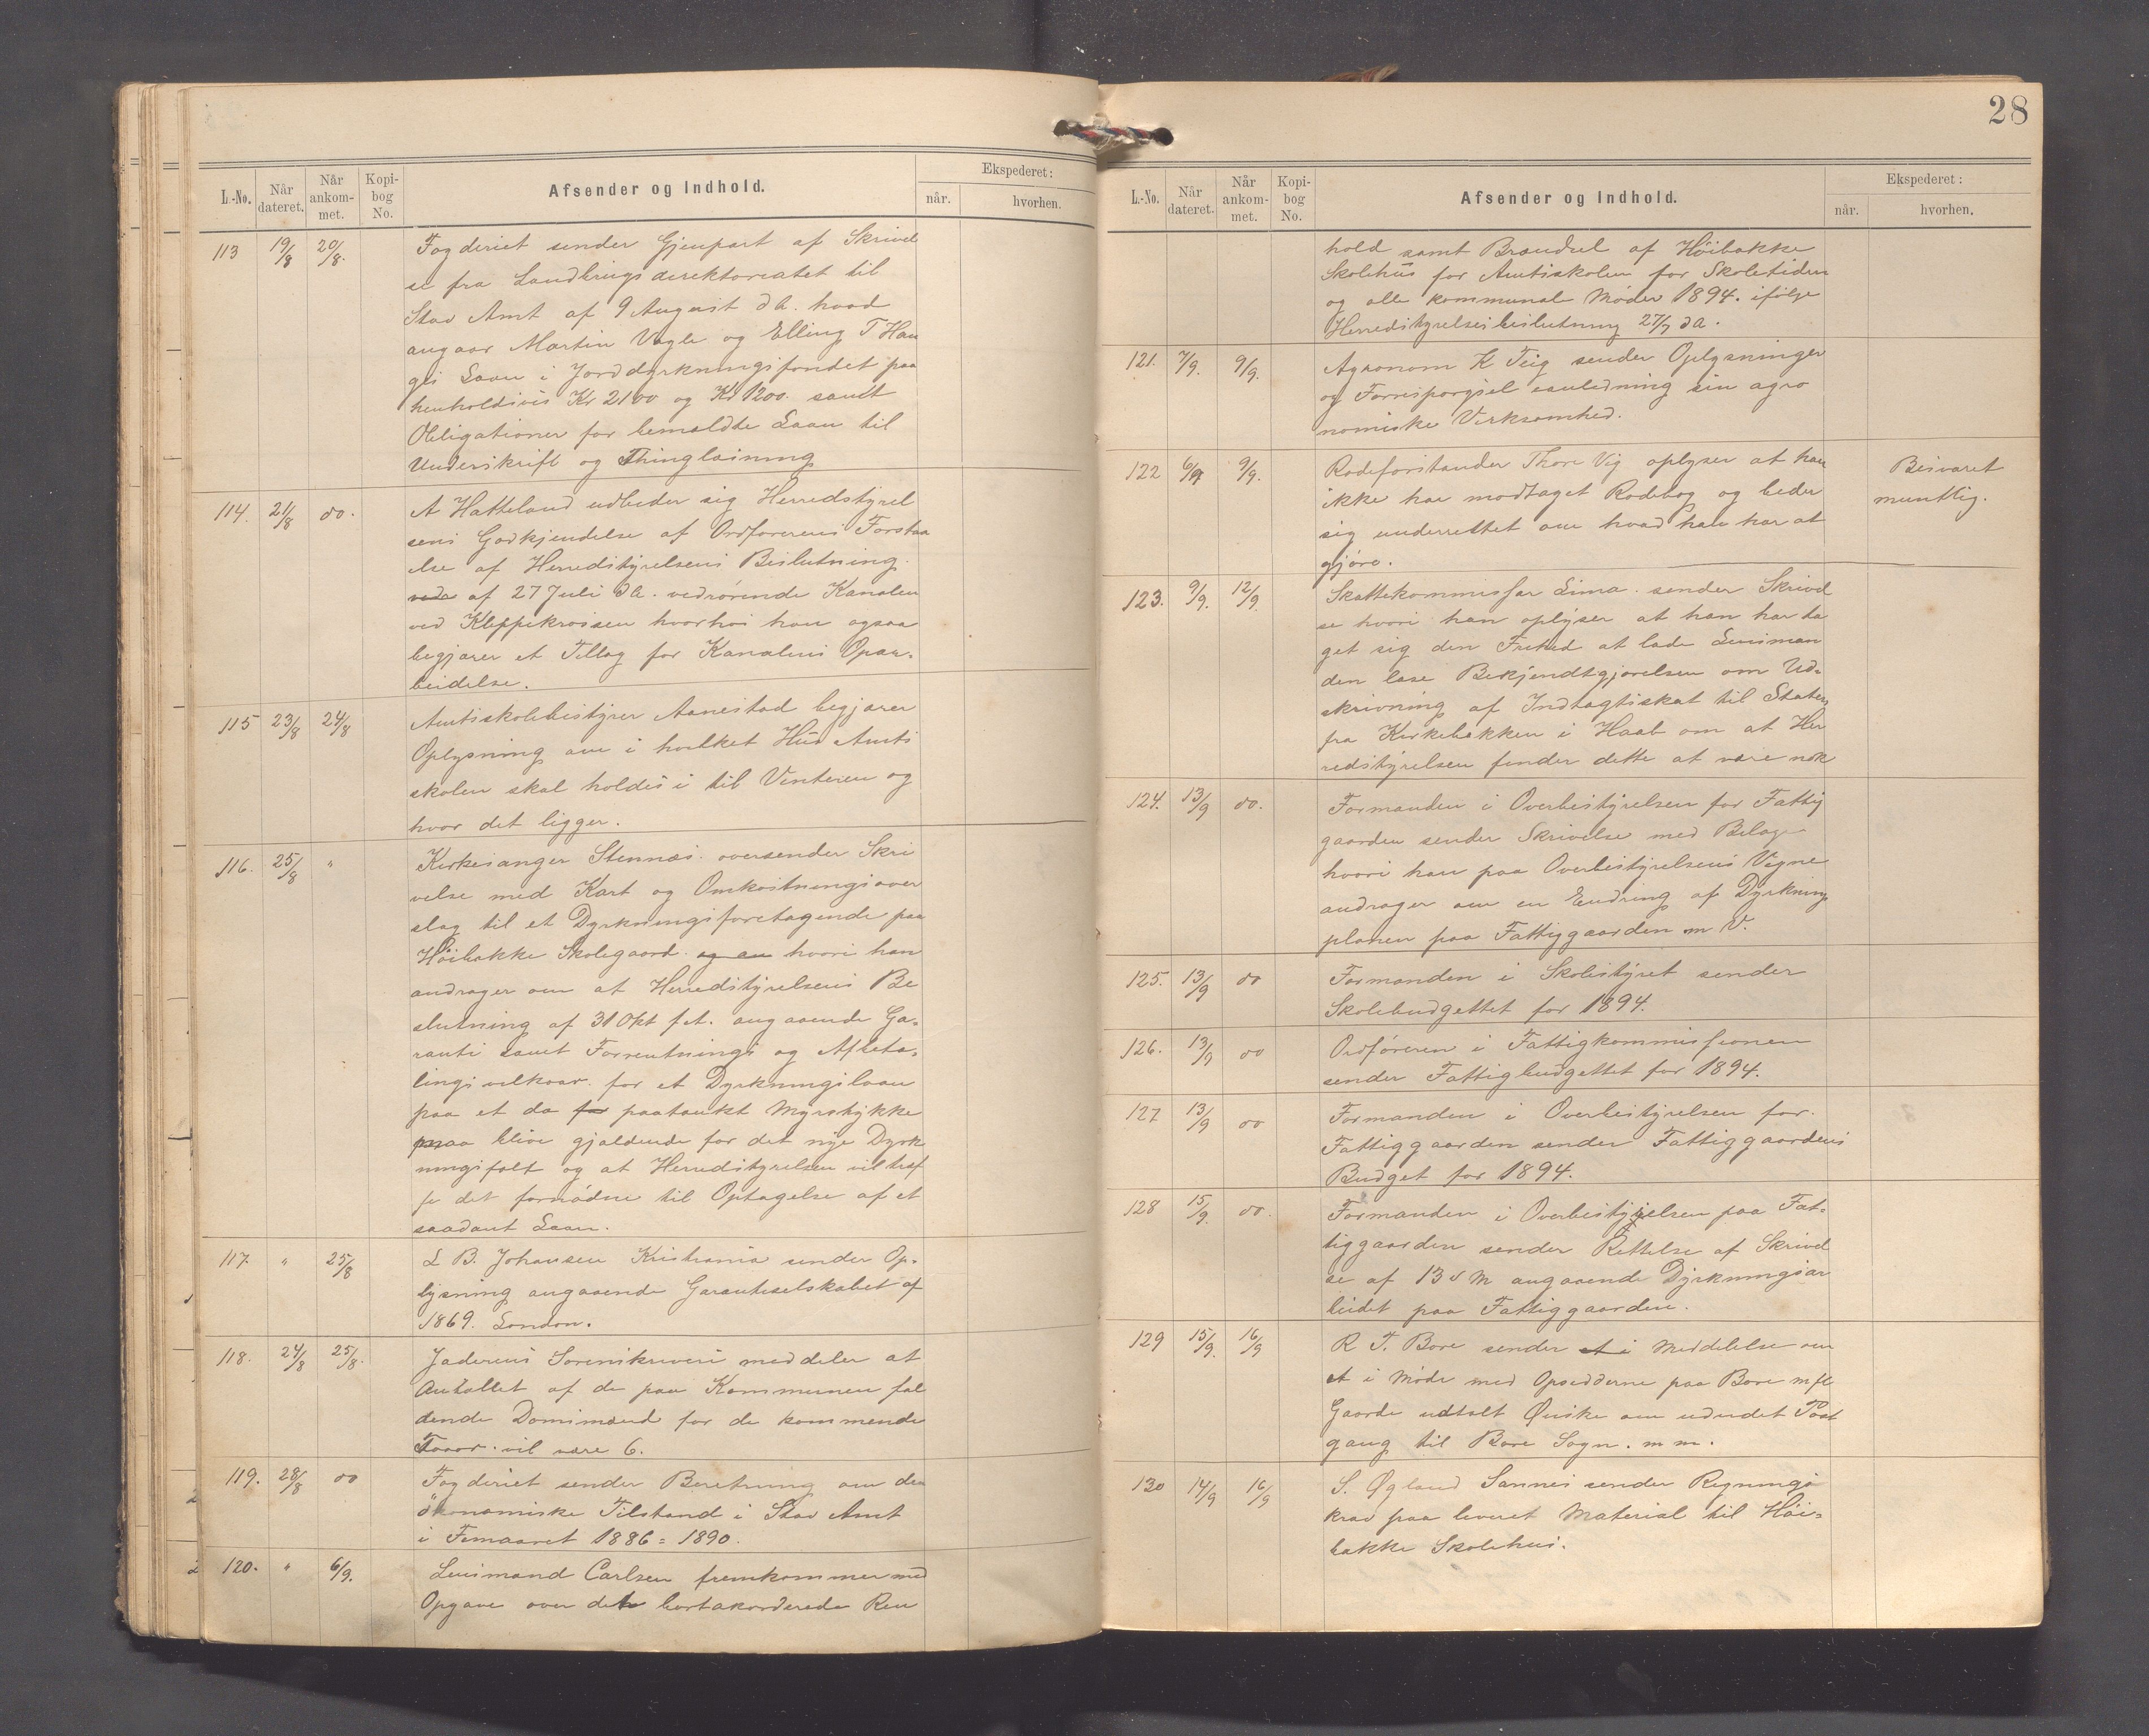 28
L.-No. Når dateret. Når ankom- met. Kopi- bog No. Afsender og Indhold. Ekspederet: når. hvorhen.
113 19/8 20/8. Fogderiet sender Gjenpart af Skrivel
se fra Landbrugsdirektoriatet til
Stav Amt af 9 August d A. hvad
angaar Martin Vagle og Elling T Hau
ges Laan i Jorddyrkningsfondet paa
henholdsvis Kr 2100 og Kr 1200. samt
Obligationer for bemeldte Laan til
Underskrift og Thinglæsning
114. 21/8 do. A Hatteland udbeder sig Herredstyrel
sens Godkjendelse af Ordførerens Forstaa
else af Herredstyrelsens Beslutning
af 27 Juli d A. vedrørende Kanalen
ved Kleppekrossen hvorhos han ogsaa
begjærer et Tillæg for Kanalens Opar-
beidelse.
115 23/8 24/8 Amtsskolebestyrer Aanestad begjærer
Oplysning om i hvilket Hus Amts
skolen skal holdes i til Vinteren og
hvor det ligger.
116. 25/8 " Kirkesanger Stennæs. oversender Skri
velse med Kart og Omkostningsover
slag til et Dyrkningsforetagende paa
Høibakke Skolegaard. og an hvori han
andrager om at Herredstyrelsens Be
slutning af 31 Okt f.A. angaaende Ga-
ranti samt Forrentnings og Afbeta-
lingsvilkaar. for et Dyrkningslaan
paa et da for paatænkt Myrstykke
maa blive gjældende for det nye Dyrk
ningsfelt og at Herredstyrelsen vil træf
fe det fornødne til Optagelse af et
saadant Laan.
117. " 25/8 L B. Johansen Kristiania sender Op-
lysning angaaende Garantiselskabet af
1869. London.
118. 24/8 25/8. Jæderens Sorenskriveri meddeler at
Antallet af de paa Kommunen fal
dende Domsmænd for de kommende
Toaar. vil være 6.
119. 28/8 do Fogderiet sender Beretning om den
økonomiske Tilstand i Stav Amt
i Femaaret 1886 = 1890.
120. " 6/9. Lensmand Carlsen fremkommer med
Opgave over det bortakorderede Ren
L.-No. Når dateret. Når ankom- met. Kopi- bog No. Afsender og Indhold. Ekspederet: når. hvorhen.
hold samt Brændsel af Høibakke
Skolehus for Amtsskolen for Skoletiden
og alle kommunale Møder 1894. ifølge
Herredstyrelsesbeslutning 27/7 d A.
121. 7/9. 9/9. Agronom K Teig sender Oplysninger
og Forrespørgsel sin agro
nomiske Virksomhed.
122 6/9 9/9. Rodeforstander Thore Vig oplyser at han
ikke har modtaget Rodebog og beder
sig underrettet om hvad han har at
gjøre.
Besvaret
muntlig.
123. 9/9. 12/9. Skattekommissær Lima. sender Skrivel
se hvori han oplyser at han har ta
get sig den Frihed at lade Lensman
den læse Bekjendtgjørelsen om Ud-
skrivning af Indtægtsskat til Staten
fra Kirkebakken i Haab om at Her
redstyrelsen finder dette at være nok
124. 13/9 do. Formanden i Overbestyrelsen for Fattig
gaarden sender Skrivelse med Bilag
hvori han paa Overbestyrelsens Vegne
andrager om en Endring af Dyrknings
planen paa Fattiggaarden m V.
125. 13/9 do Formanden i Skolestyret sender
Skolebudgettet for 1894.
126. 13/9 do Ordføreren i Fattigkommissionen
sender Fattigbudgettet for 1894.
127 13/9 do Formanden i Overbestyrelsen for.
Fattiggaarden sender Fattiggaardens
Budget for 1894.
128 15/9. do. Formanden i Overbestyrelsen paa Fat-
tiggaarden sender Rettelse af Skrivel
se af 13 d M angaaende Dyrkningsar
beidet paa Fattiggaarden.
129 15/9. 16/9 R T. Bore sender et i Meddelelse om
et i Møde med Opsidderne paa Bore m fl
Gaarde udtalt Ønske om
gang til Bore Sogn. m m.
130 14/9 16/9 S. Øgland Sannes sender Regnings
krav paa leveret Material til Høi-
bakke Skolehus.